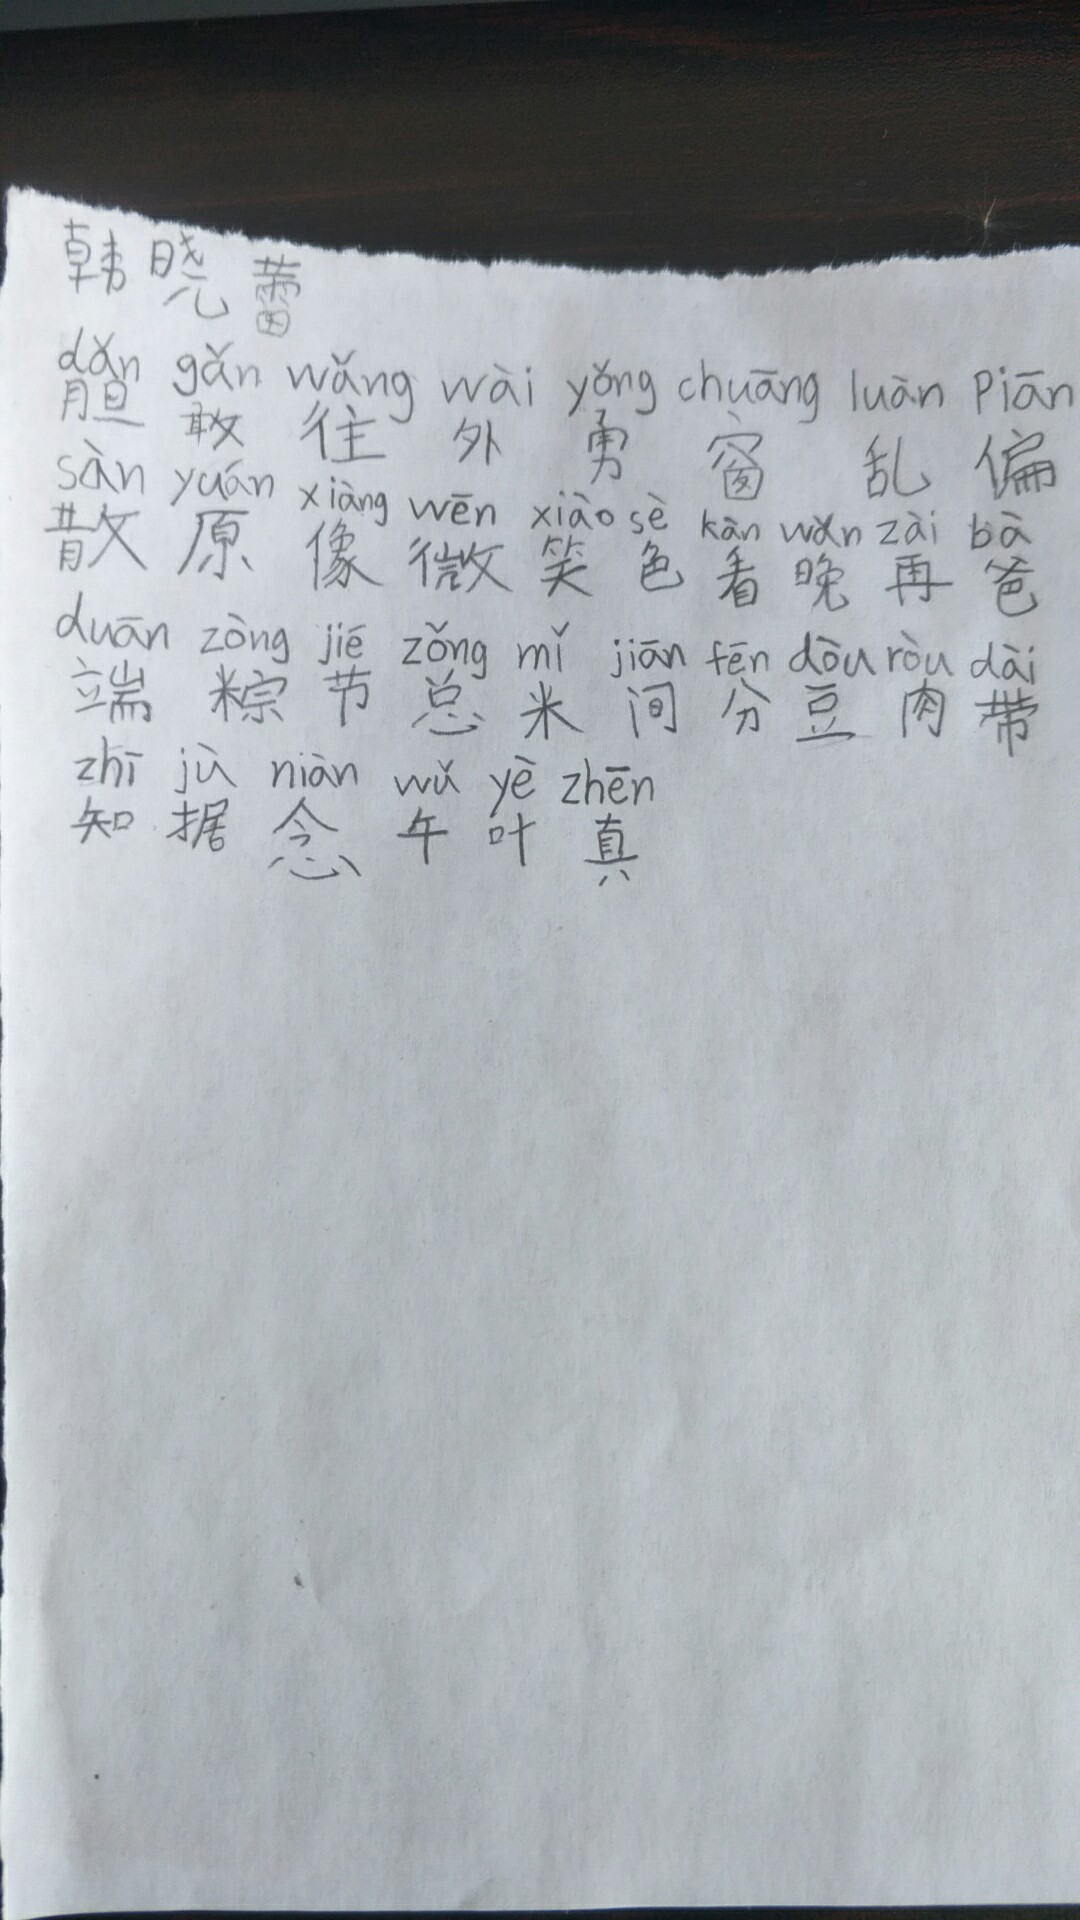 韩晓蕾
dǎn gǎn wǎng wài yǒng chuāng luàn Piān
胆 敢 往 外 勇 窗 乱 偏
sàn yuán xiàng wēn xiào sè kàn wǎn zài bà
散 原 像 微 笑 色 看 晚 再 爸
duān zòng jié zǒng mǐ jiān fēn dòu ròu dài
端 粽 节 总 米 间 分 豆 肉 带
zhī jù niàn wǔ yè zhēn
知 据 念 午 叶 真